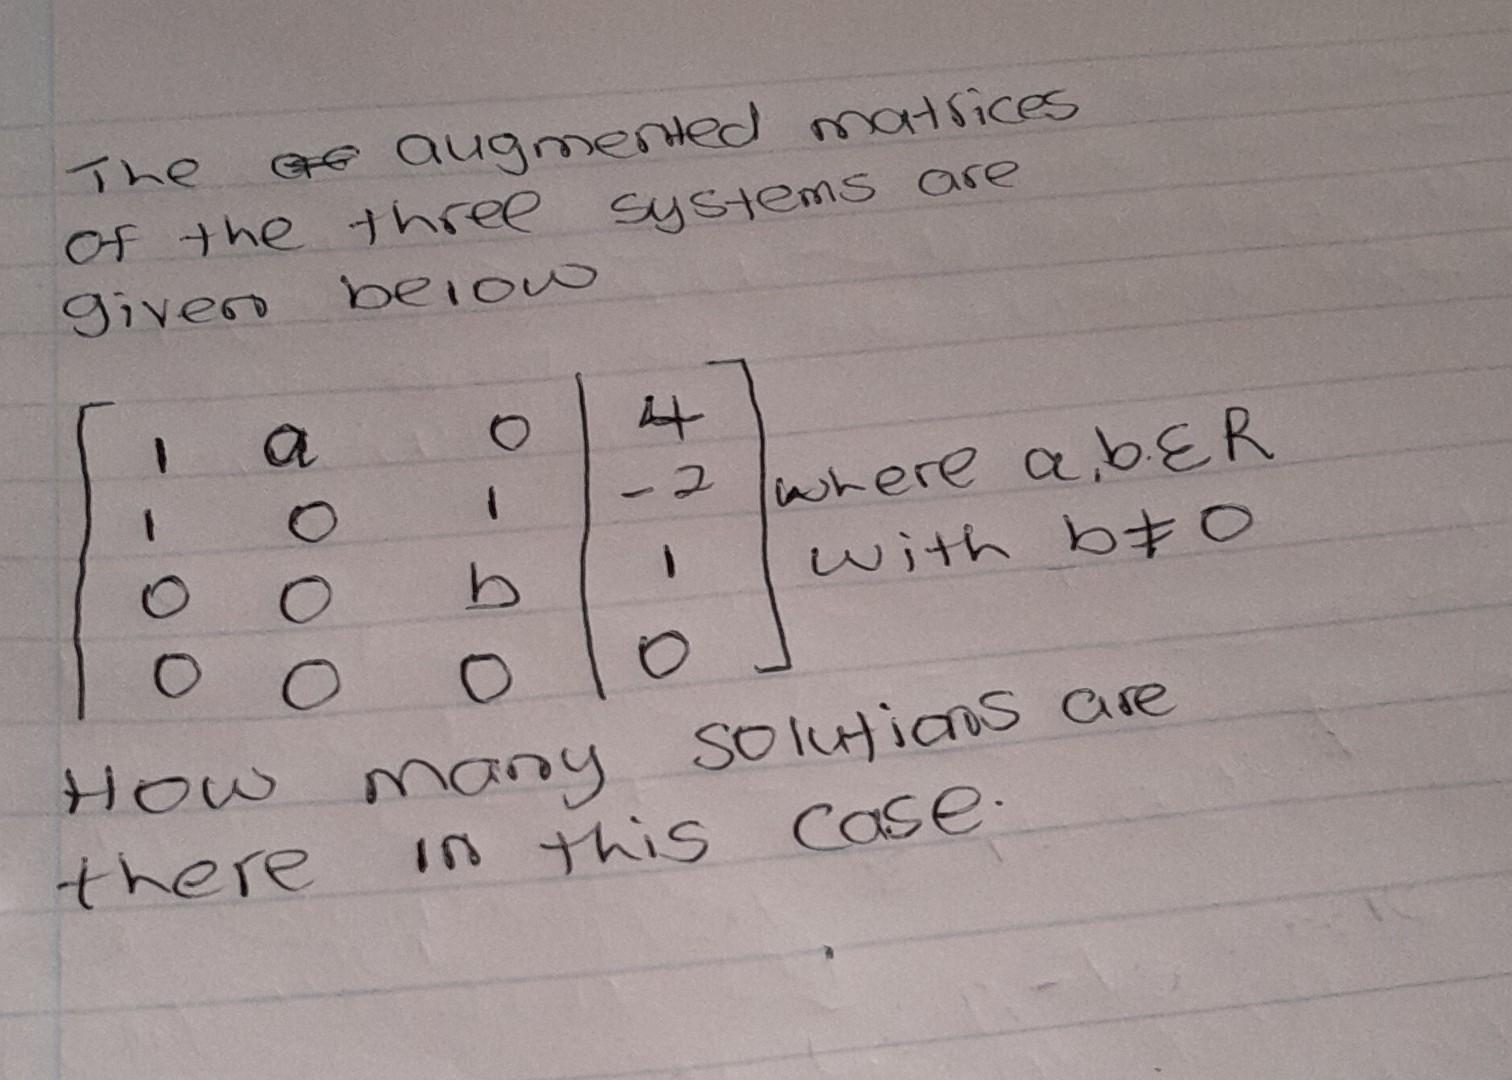 The augmented matrices
of the three systems are
given below
1 a 0 4
1 0 1 -2
0 0 b 1
0 0 0 0
where a,b ε R
with b ≠ 0
How many solutions are
there in this case.